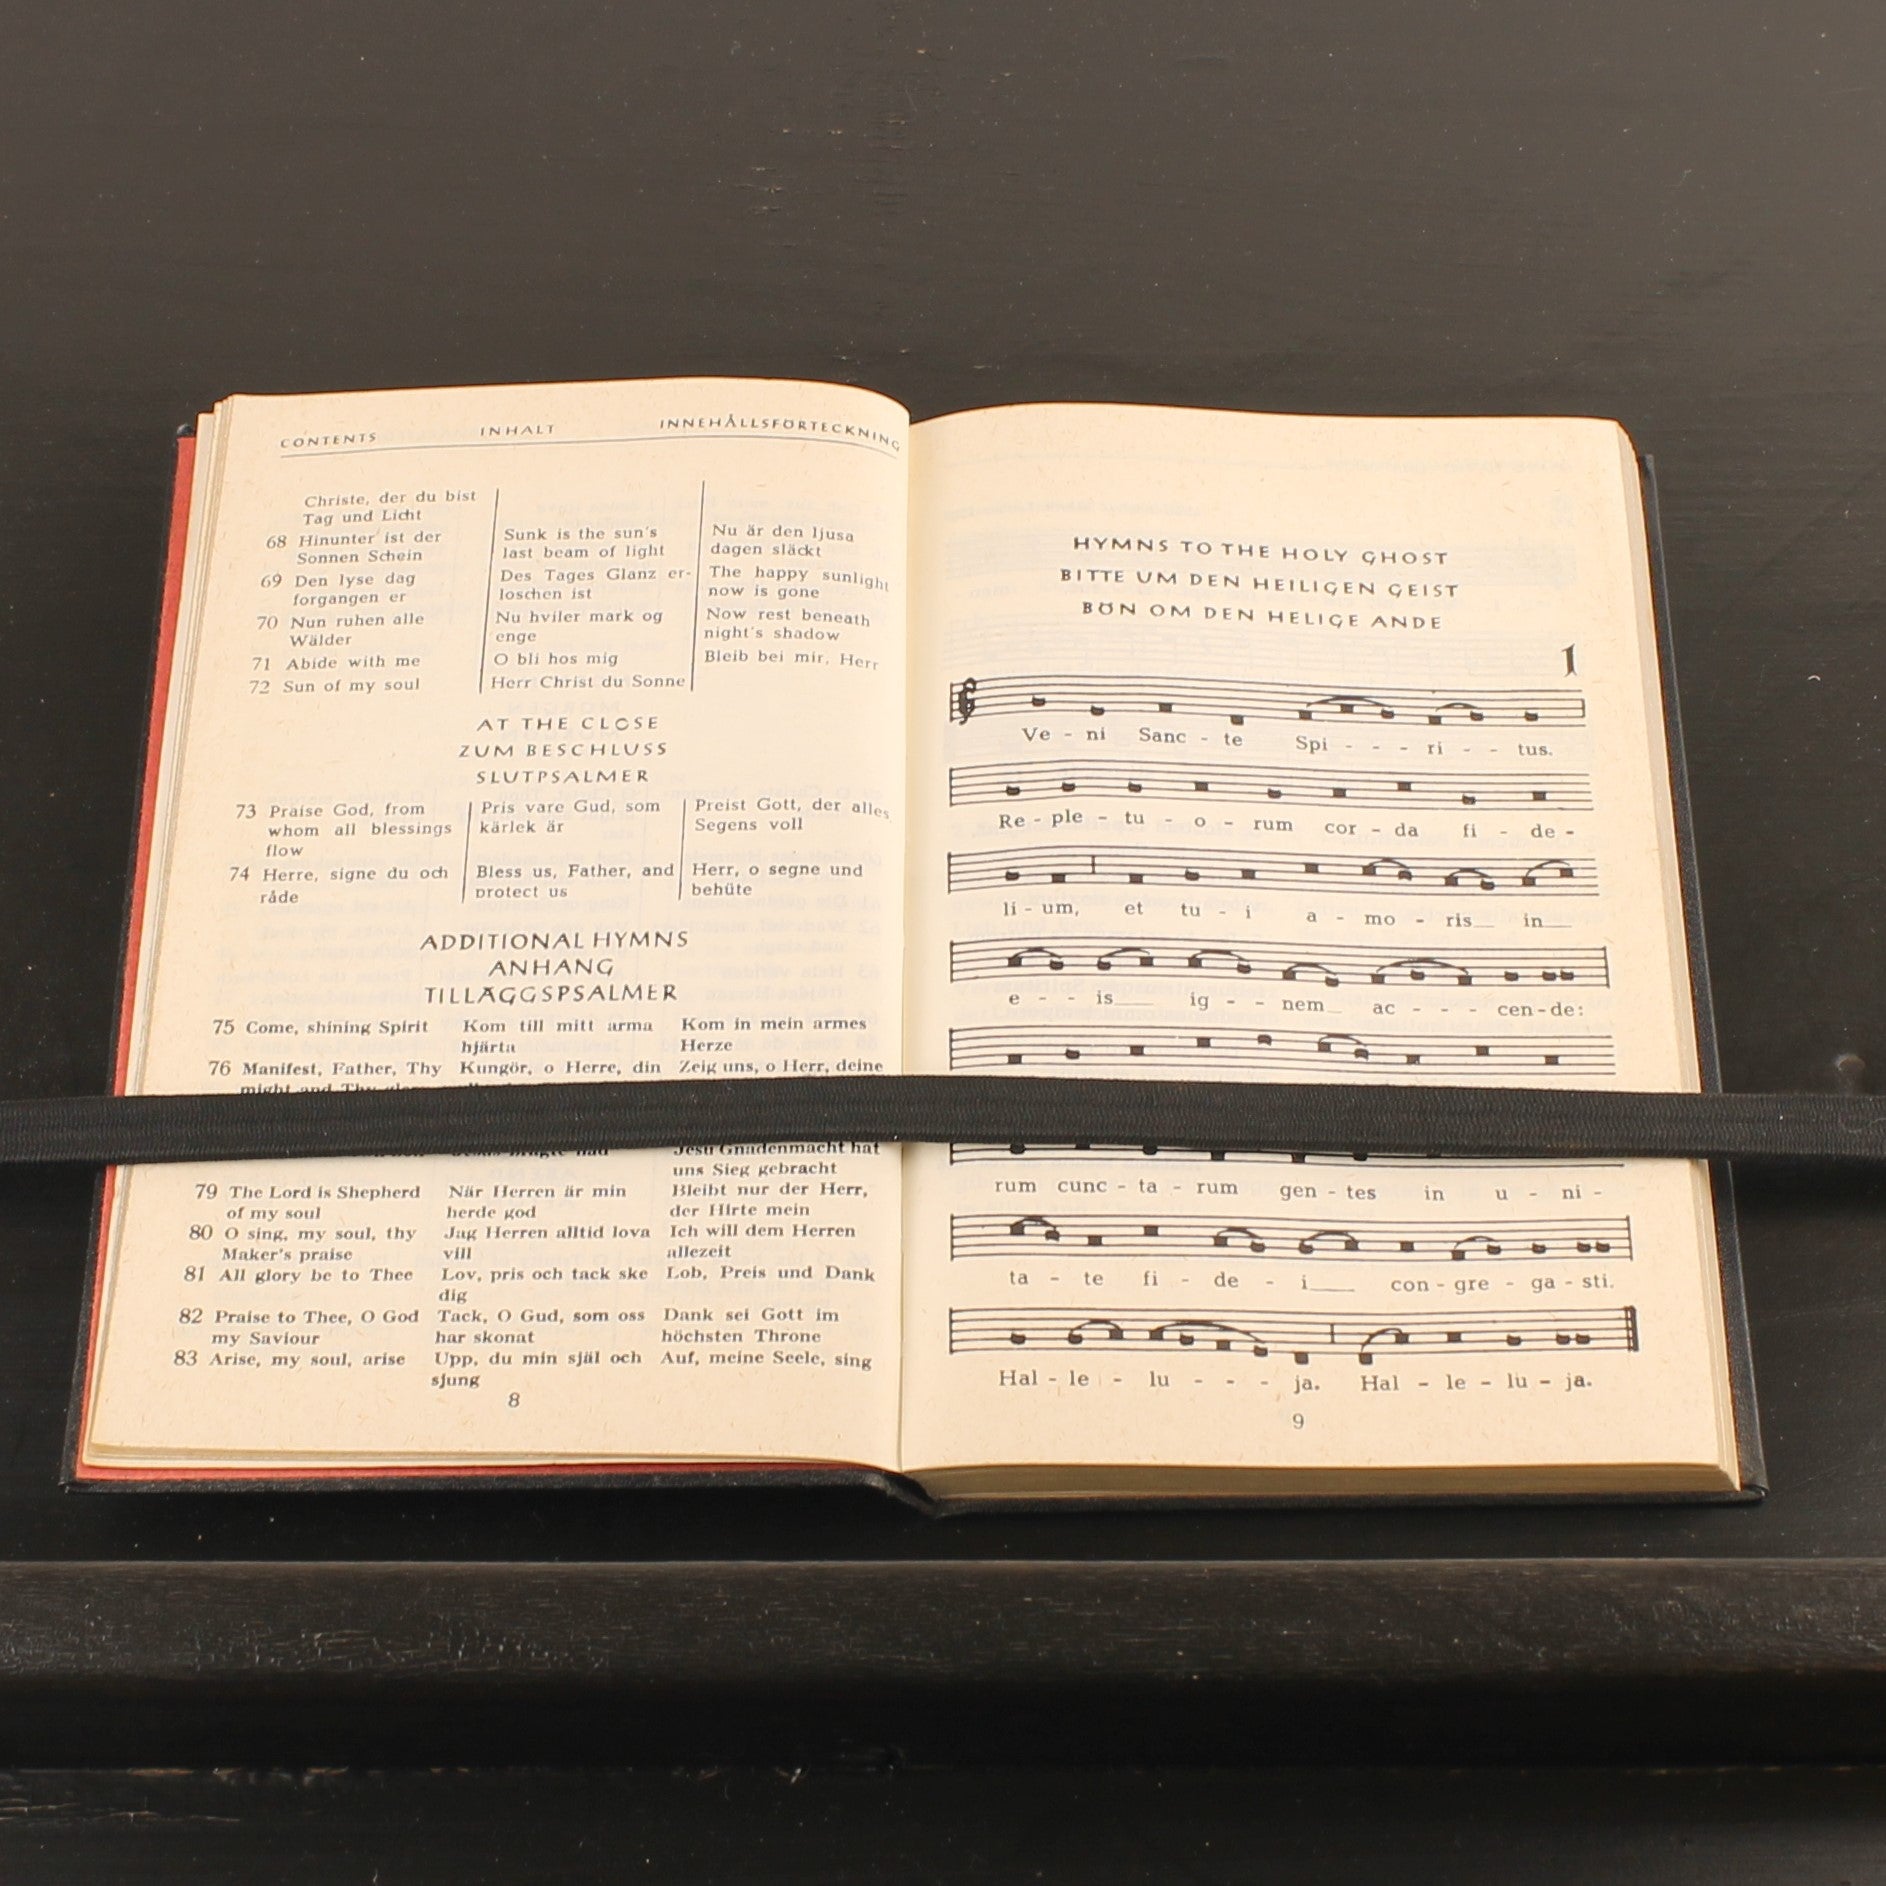 CONTENTS INHALT INNEHÅLLSFÖRTECKNING
Christe, der du bist
Tag und Licht
68 Hinunter ist der
Sonnen Schein
Sunk is the sun's
last beam of light
Nu är den ljusa
dagen släckt
69 Den lyse dag
forgangen er
Des Tages Glanz er-
loschen ist
The happy sunlight
now is gone
70 Nun ruhen alle
Wälder
Nu hviler mark og
enge
Now rest beneath
night's shadow
71 Abide with me
O bli hos mig
Bleib bei mir, Herr
72 Sun of my soul
Herr Christ du Sonne
AT THE CLOSE
ZUM BESCHLUSS
SLUTPSALMER
73 Praise God, from
whom all blessings
flow
Pris vare Gud, som
kärlek är
Preist Gott, der alles
Segens voll
74 Herre, signe du och
råde
Bless us, Father, and
protect us
Herr, o segne und
behüte
ADDITIONAL HYMNS
ANHANG
TILLÄGGSPSALMER
75 Come, shining Spirit
Kom till mitt arma
hjärta
Kom in mein armes
Herze
76 Manifest, Father, Thy
might and Thy
Kungör, o Herre, din
Zeig uns, o Herr, deine
Jesu Gnadenmacht hat
uns Sieg gebracht
79 The Lord is Shepherd
of my soul
När Herren är min
herde god
Bleibt nur der Herr,
der Hirte mein
80 O sing, my soul, thy
Maker's praise
Jag Herren alltid lova
vill
Ich will dem Herren
allezeit
81 All glory be to Thee
Lov, pris och tack ske
dig
Lob, Preis und Dank
82 Praise to Thee, O God
my Saviour
Tack, O Gud, som oss
har skonat
Dank sei Gott im
höchsten Throne
83 Arise, my soul, arise
Upp, du min själ och
sjung
Auf, meine Seele, sing
8
HYMNS TO THE HOLY GHOST
BITTE UM DEN HEILIGEN GEIST
BÖN OM DEN HELIGE ANDE
1
Ve - ni Sanc - te Spi - - - ri - - tus.
Re - ple - tu - o - rum cor - da fi - de -
li - um, et tu - i a - mo - ris__ in__
e - - is___ ig - - nem_ ac - - - cen-de:
rum cunc - ta - rum gen - tes in u - ni -
ta - te fi - de - i___ con - gre - ga - sti.
Hal - le - lu - - - ja. Hal - le - lu - ja.
9